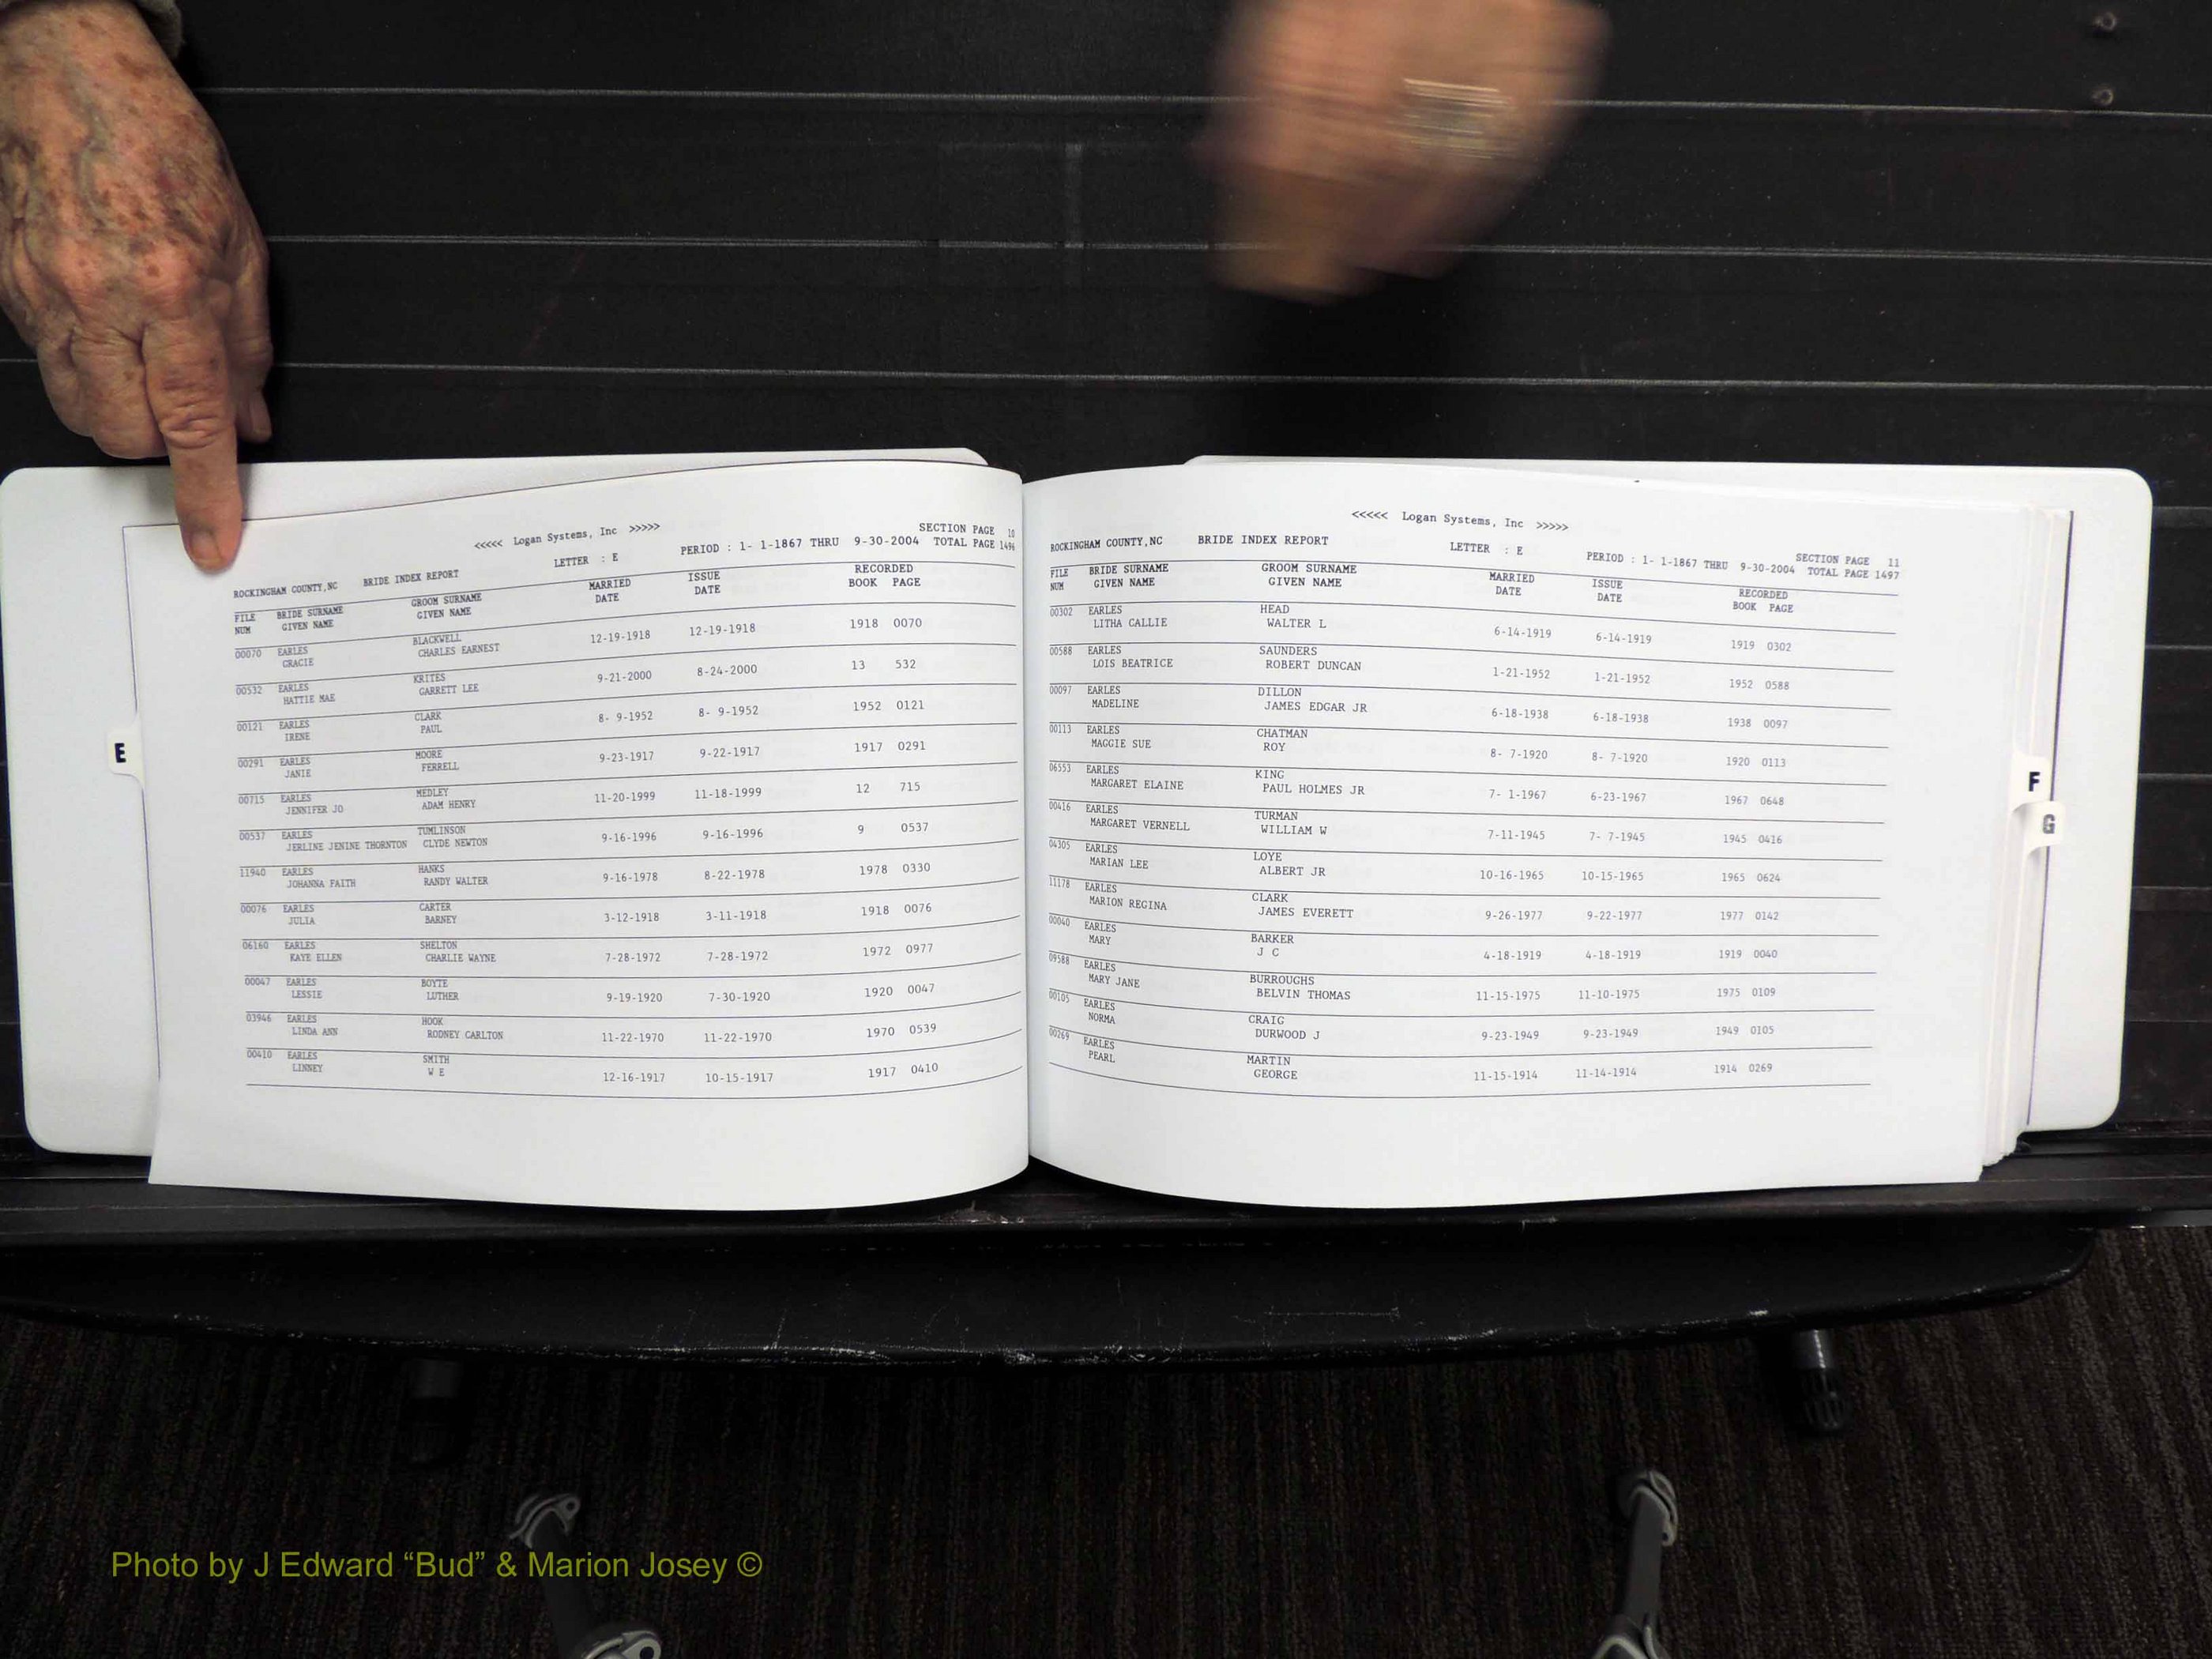 <<<<< Logan Systems, Inc >>>>>
SECTION PAGE 10
ROCKINGHAM COUNTY,NC BRIDE INDEX REPORT LETTER : E PERIOD : 1- 1-1867 THRU 9-30-2004 TOTAL PAGE 1496
FILE BRIDE SURNAME GROOM SURNAME MARRIED ISSUE RECORDED
NUM GIVEN NAME GIVEN NAME DATE DATE BOOK PAGE
00070 EARLES BLACKWELL 12-19-1918 12-19-1918 1918 0070
GRACIE CHARLES EARNEST
00532 EARLES KRITES 9-21-2000 8-24-2000 13 532
HATTIE MAE GARRETT LEE
00121 EARLES CLARK 8- 9-1952 8- 9-1952 1952 0121
IRENE PAUL
00291 EARLES MOORE 9-23-1917 9-22-1917 1917 0291
JANIE FERRELL
00715 EARLES MEDLEY 11-20-1999 11-18-1999 12 715
JENNIFER JO ADAM HENRY
00537 EARLES TUMLINSON 9-16-1996 9-16-1996 9 0537
JERLINE JENINE THORNTON CLYDE NEWTON
11940 EARLES HANKS 9-16-1978 8-22-1978 1978 0330
JOHANNA FAITH RANDY WALTER
00076 EARLES CARTER 3-12-1918 3-11-1918 1918 0076
JULIA BARNEY
06160 EARLES SHELTON 7-28-1972 7-28-1972 1972 0977
KAYE ELLEN CHARLIE WAYNE
00047 EARLES BOYTE 9-19-1920 7-30-1920 1920 0047
LESSIE LUTHER
03946 EARLES HOOK 11-22-1970 11-22-1970 1970 0539
LINDA ANN RODNEY CARLTON
00410 EARLES SMITH 12-16-1917 10-15-1917 1917 0410
LINNEY W E
E
<<<<< Logan Systems, Inc >>>>>
SECTION PAGE 11
ROCKINGHAM COUNTY,NC BRIDE INDEX REPORT LETTER : E PERIOD : 1- 1-1867 THRU 9-30-2004 TOTAL PAGE 1497
FILE BRIDE SURNAME GROOM SURNAME MARRIED ISSUE RECORDED
NUM GIVEN NAME GIVEN NAME DATE DATE BOOK PAGE
00302 EARLES HEAD 6-14-1919 6-14-1919 1919 0302
LITHA CALLIE WALTER L
00588 EARLES SAUNDERS 1-21-1952 1-21-1952 1952 0588
LOIS BEATRICE ROBERT DUNCAN
00097 EARLES DILLON 6-18-1938 6-18-1938 1938 0097
MADELINE JAMES EDGAR JR
00113 EARLES CHATMAN 8- 7-1920 8- 7-1920 1920 0113
MAGGIE SUE ROY
06553 EARLES KING 7- 1-1967 6-23-1967 1967 0648
MARGARET ELAINE PAUL HOLMES JR
00416 EARLES TURMAN 7-11-1945 7- 7-1945 1945 0416
MARGARET VERNELL WILLIAM W
04305 EARLES LOYE 10-16-1965 10-15-1965 1965 0624
MARIAN LEE ALBERT JR
11178 EARLES CLARK 9-26-1977 9-22-1977 1977 0142
MARION REGINA JAMES EVERETT
00040 EARLES BARKER 4-18-1919 4-18-1919 1919 0040
MARY J C
09588 EARLES BURROUGHS 11-15-1975 11-10-1975 1975 0109
MARY JANE BELVIN THOMAS
00105 EARLES CRAIG 9-23-1949 9-23-1949 1949 0105
NORMA DURWOOD J
00269 EARLES MARTIN 11-15-1914 11-14-1914 1914 0269
PEARL GEORGE
F
G
Photo by J Edward “Bud” & Marion Josey ©